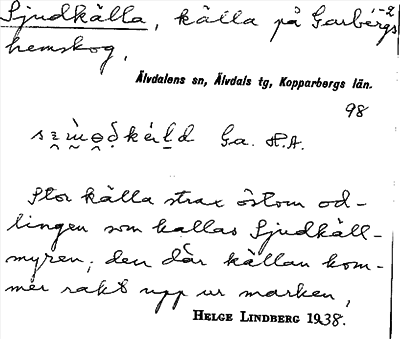 Sjudkälla, källa på Garbergs
hemskog.
Älvdalens sn, Älvdals tg, Kopparbergs län.
98
Ga. H.A.
Stor källa strax östom od-
lingen som kallas Sjudkäll-
myren; den där källan kom-
mer rakt upp ur marken,
HELGE LINDBERG 1938.